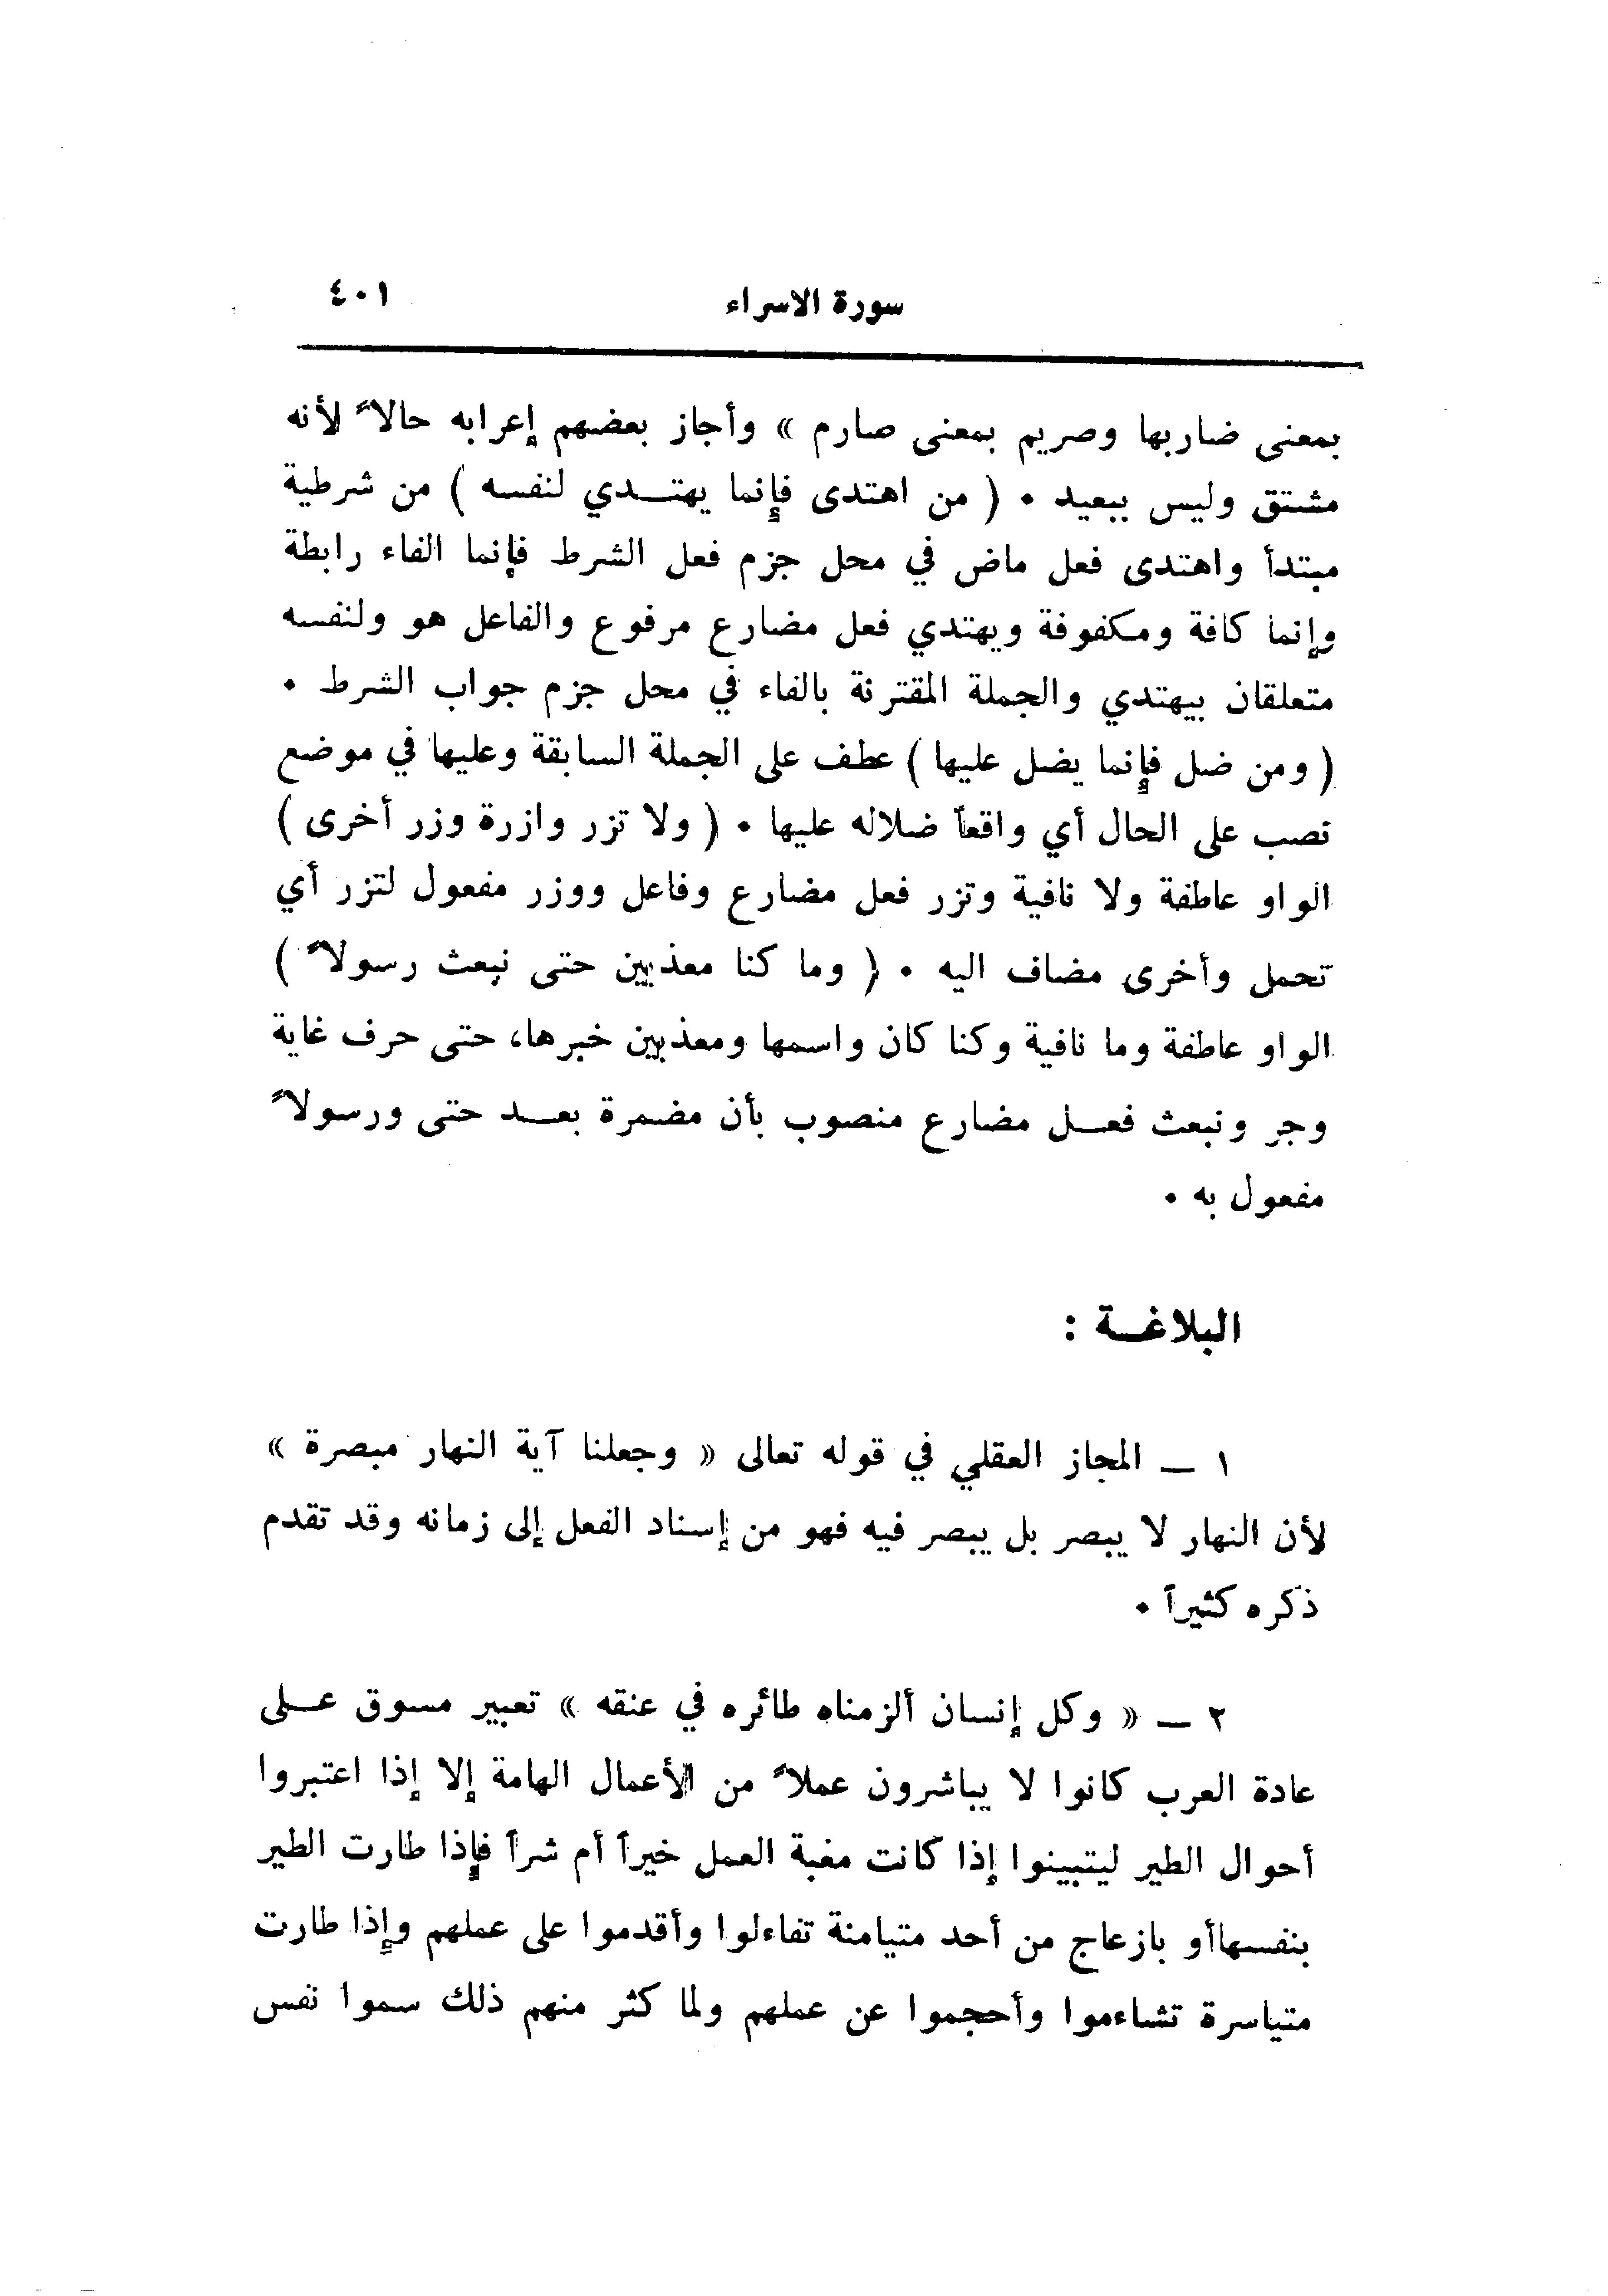 سورة الاسراء ٤٠١
بمعنى ضاربها وصريم بمعنى صارم » وأجاز بعضهم إعرابه حالاً لأنه
مشتق وليس ببعيد ٠ ( من اهتدى فإنما يهتــدي لنفسه ) من شرطية
مبتدأ واهتدى فعل ماض في محل جزم فعل الشرط فإنما الفاء رابطة
وإنما كافة ومكفوفة ويهتدي فعل مضارع مرفوع والفاعل هو ولنفسه
متعلقان بيهتدي والجملة المقترنة بالفاء في محل جزم جواب الشرط ٠
( ومن ضل فإنما يضل عليها ) عطف على الجملة السابقة وعليها في موضع
نصب على الحال أي واقعاً ضلاله عليها ٠ ( ولا تزر وازرة وزر أخرى )
الواو عاطفة ولا نافية وتزر فعل مضارع وفاعل ووزر مفعول لتزر أي
تحمل وأخرى مضاف اليه ٠ ( وما كنا معذبين حتى نبعث رسولاً )
الواو عاطفة وما نافية وكنا كان واسمها ومعذبين خبرها، حتى حرف غاية
وجر ونبعث فعــل مضارع منصوب بأن مضمرة بعــد حتى ورسولاً
مفعول به ٠
البلاغــة :
١ – المجاز العقلي في قوله تعالى « وجعلنا آية النهار مبصرة »
لأن النهار لا يبصر بل يبصر فيه فهو من إسناد الفعل إلى زمانه وقد تقدم
ذكره كثيراً ٠
٢ – « وكل إنسان ألزمناه طائره في عنقه » تعبير مسوق عــلى
عادة العرب كانوا لا يباشرون عملاً من الأعمال الهامة إلا إذا اعتبروا
أحوال الطير ليتبينوا إذا كانت مغبة العمل خيراً أم شراً فإذا طارت الطير
بنفسهاأو بازعاج من أحد متيامنة تفاءلوا وأقدموا على عملهم وإذا طارت
متياسرة تشاءموا وأحجموا عن عملهم ولما كثر منهم ذلك سموا نفس